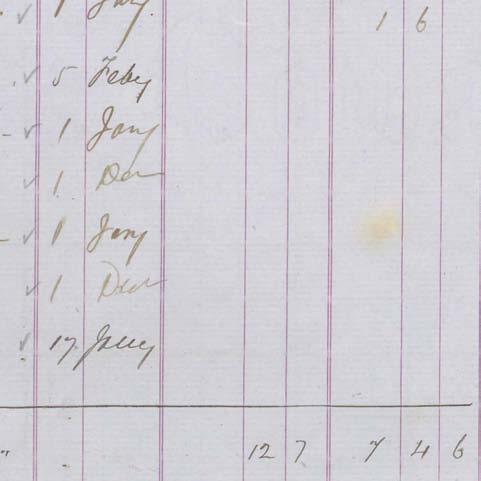 1 Jany. 1 6
5 Feby
1 Jany
1 Decr
1 Jany
1 Decr
17 Jany
12 7 7 4 6